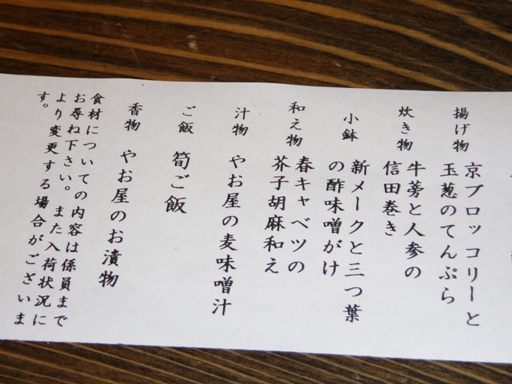 揚げ物
京ブロッコリーと
玉葱のてんぷら
炊き物
牛蒡と人参の
信田巻き
小鉢
新メークと三つ葉
の酢味噌がけ
和え物
春キャベツの
芥子胡麻和え
汁物
やお屋の麦味噌汁
ご飯
筍ご飯
香物
やお屋のお漬物
食材についての内容は係員まで
お尋ね下さい。 また入荷状況に
より変更する場合がございま
す。